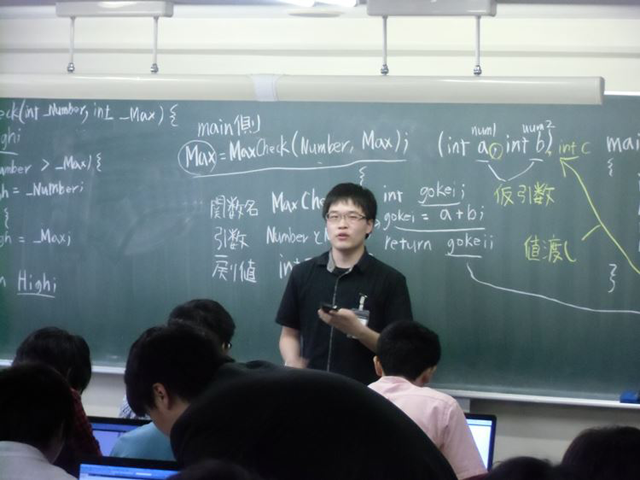 eck(int _Number, int _Max) {
ghi
umber > _Max) {
gh = _Number;
{
gh = _Max;
n High;
main側
Max = MaxCheck(Number, Max);
{
関数名 MaxChe
引数 Number
戻り値 int
num1 num2
(int a, int b), int c
仮引数
値渡し
int gokei;
gokei = a+b;
return gokei;
main
}